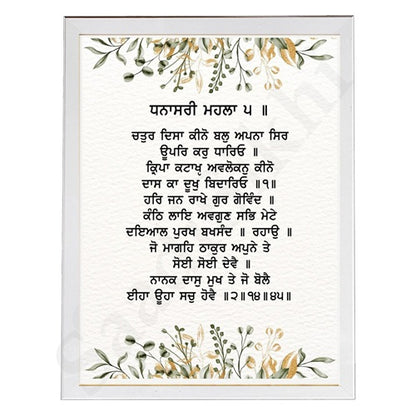 ਧਨਾਸਰੀ ਮਹਲਾ ੫ ॥
ਚਤੁਰ ਦਿਸਾ ਕੀਨੋ ਬਲੁ ਅਪਨਾ ਸਿਰ
ਊਪਰਿ ਕਰੁ ਧਾਰਿਓ ॥
ਕ੍ਰਿਪਾ ਕਟਾਖੵ ਅਵਲੋਕਨੁ ਕੀਨੋ
ਦਾਸ ਕਾ ਦੂਖੁ ਬਿਦਾਰਿਓ ॥੧॥
ਹਰਿ ਜਨ ਰਾਖੇ ਗੁਰ ਗੋਵਿੰਦ ॥
ਕੰਠਿ ਲਾਇ ਅਵਗੁਣ ਸਭਿ ਮੇਟੇ
ਦਇਆਲ ਪੁਰਖ ਬਖਸੰਦ ॥ ਰਹਾਉ ॥
ਜੋ ਮਾਗਹਿ ਠਾਕੁਰ ਅਪੁਨੇ ਤੇ
ਸੋਈ ਸੋਈ ਦੇਵੈ ॥
ਨਾਨਕ ਦਾਸੁ ਮੁਖ ਤੇ ਜੋ ਬੋਲੈ
ਈਹਾ ਊਹਾ ਸਚੁ ਹੋਵੈ ॥੨॥੧੪॥੪੫॥